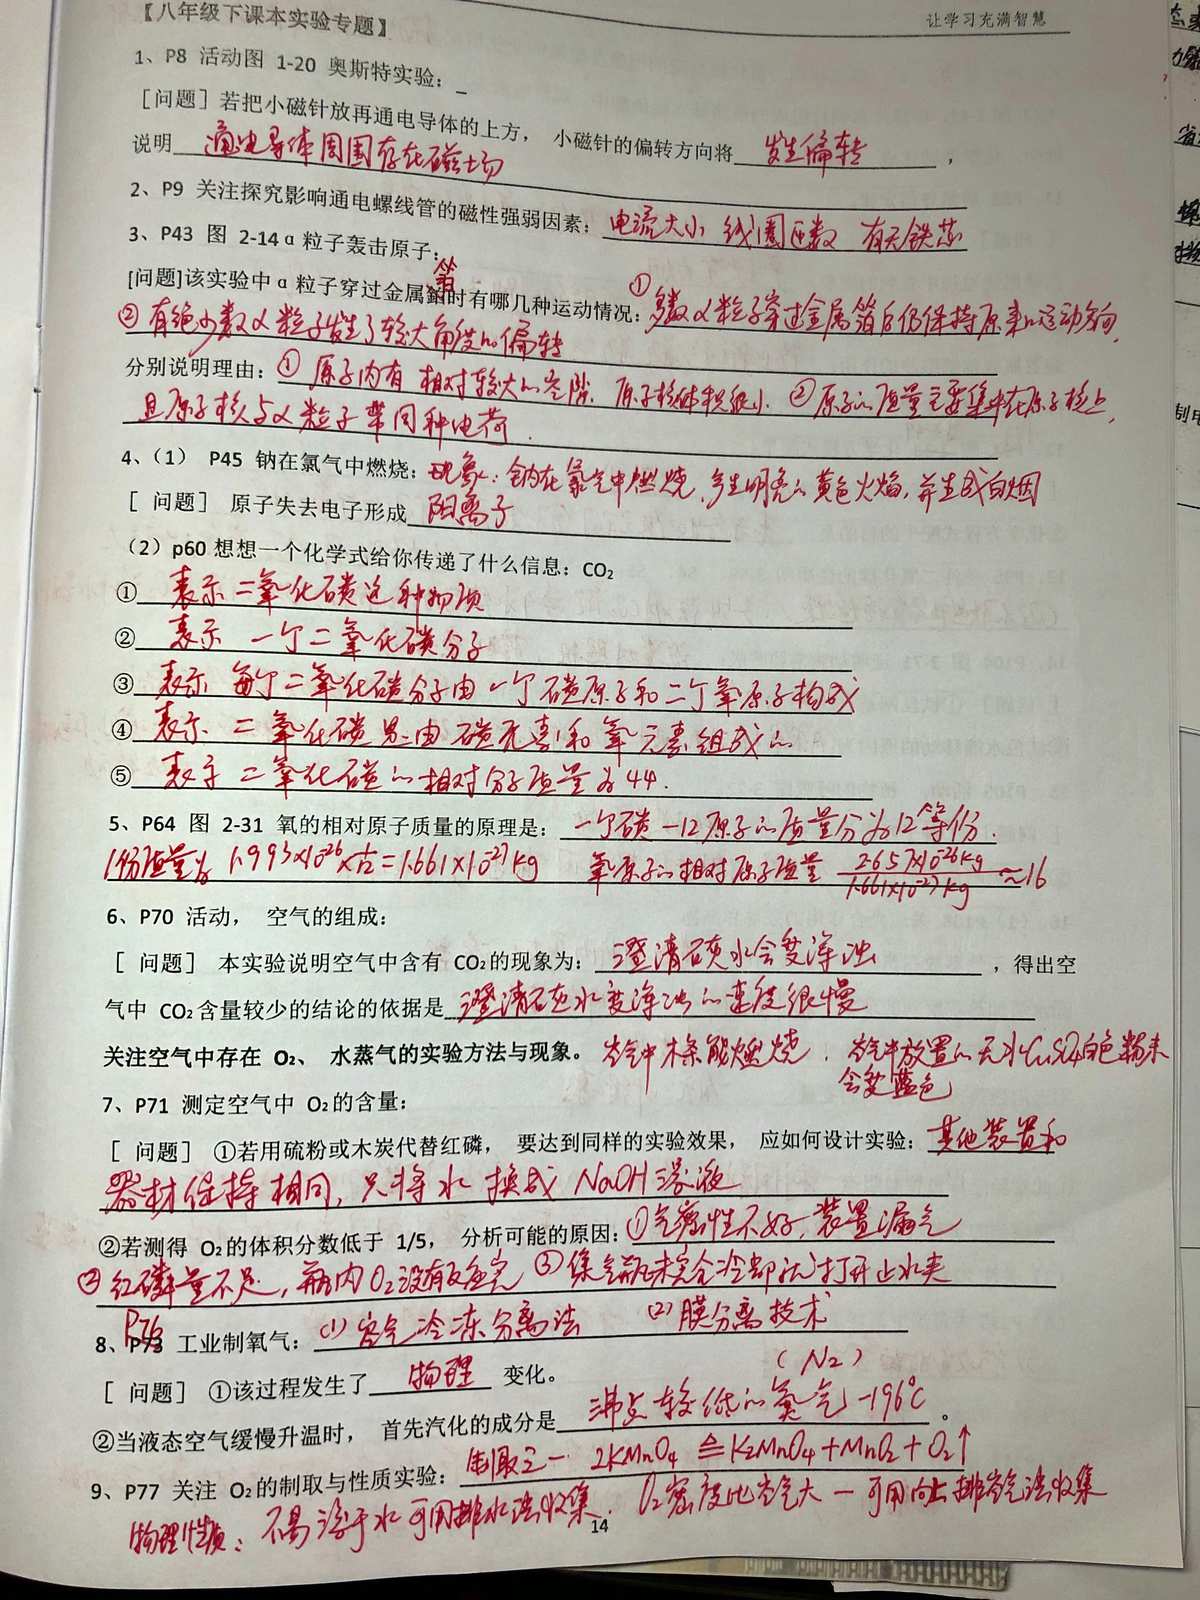 【八年级下课本实验专题】
让学习充满智慧
1、P8 活动图 1-20 奥斯特实验：_
[问题]若把小磁针放再通电导体的上方， 小磁针的偏转方向将 发生偏转 ，
说明 通电导体周围存在磁场
2、P9 关注探究影响通电螺线管的磁性强弱因素： 电流大小 线圈匝数 有无铁芯
3、P43 图 2-14α粒子轰击原子：
[问题]该实验中α粒子穿过金属箔时有哪几种运动情况：①多数α粒子穿过金属箔后仍保持原来的运动方向，
②有绝少数α粒子发生了较大角度的偏转
分别说明理由：①原子内有相对较大的空隙，原子核体积很小．②原子的质量主要集中在原子核上，
且原子核与α粒子带同种电荷．
4、（1） P45 钠在氯气中燃烧：现象：钠在氯气中燃烧，产生明亮的黄色火焰，并生成白烟
[ 问题] 原子失去电子形成 阳离子
（2）p60 想想一个化学式给你传递了什么信息：CO₂
① 表示二氧化碳这种物质
② 表示 一个二氧化碳分子
③ 表示 每个二氧化碳分子由一个碳原子和二个氧原子构成
④ 表示 二氧化碳是由碳元素和氧元素组成的
⑤ 表示 二氧化碳的相对分子质量为44．
5、P64 图 2-31 氧的相对原子质量的原理是： 一个碳-12原子的质量分为12等份．
1份质量为 1.993×10⁻²⁶×1/12=1.661×10⁻²⁷kg 氧原子的相对原子质量 2.657×10⁻²⁶kg/1.661×10⁻²⁷kg ≈16
6、P70 活动， 空气的组成：
[ 问题] 本实验说明空气中含有 CO₂的现象为： 澄清石灰水会变浑浊 ，得出空
气中 CO₂含量较少的结论的依据是 澄清石灰水变浑浊的速度很慢
关注空气中存在 O₂、 水蒸气的实验方法与现象。 空气中木条能燃烧．空气中放置的无水CuSO4白色粉末
会变蓝色
7、P71 测定空气中 O₂的含量：
[ 问题] ①若用硫粉或木炭代替红磷， 要达到同样的实验效果， 应如何设计实验： 其他装置和
器材保持相同，只将水换成 NaOH溶液
②若测得 O₂的体积分数低于 1/5， 分析可能的原因：①气密性不好，装置漏气
②红磷量不足，瓶内O2没有反应完 ③集气瓶未完全冷却就打开止水夹
P76
8、P73 工业制氧气： (1) 空气冷冻分离法 (2) 膜分离技术
[ 问题] ①该过程发生了 物理 变化。
（N2）
②当液态空气缓慢升温时， 首先汽化的成分是 沸点较低的氮气 -196℃ 。
9、P77 关注 O₂的制取与性质实验： 制取之一 2KMnO4 ≜ K2MnO4+MnO2+O2↑
物理性质：不易溶于水可用排水法收集．O2密度比空气大—可用向上排空气法收集
14